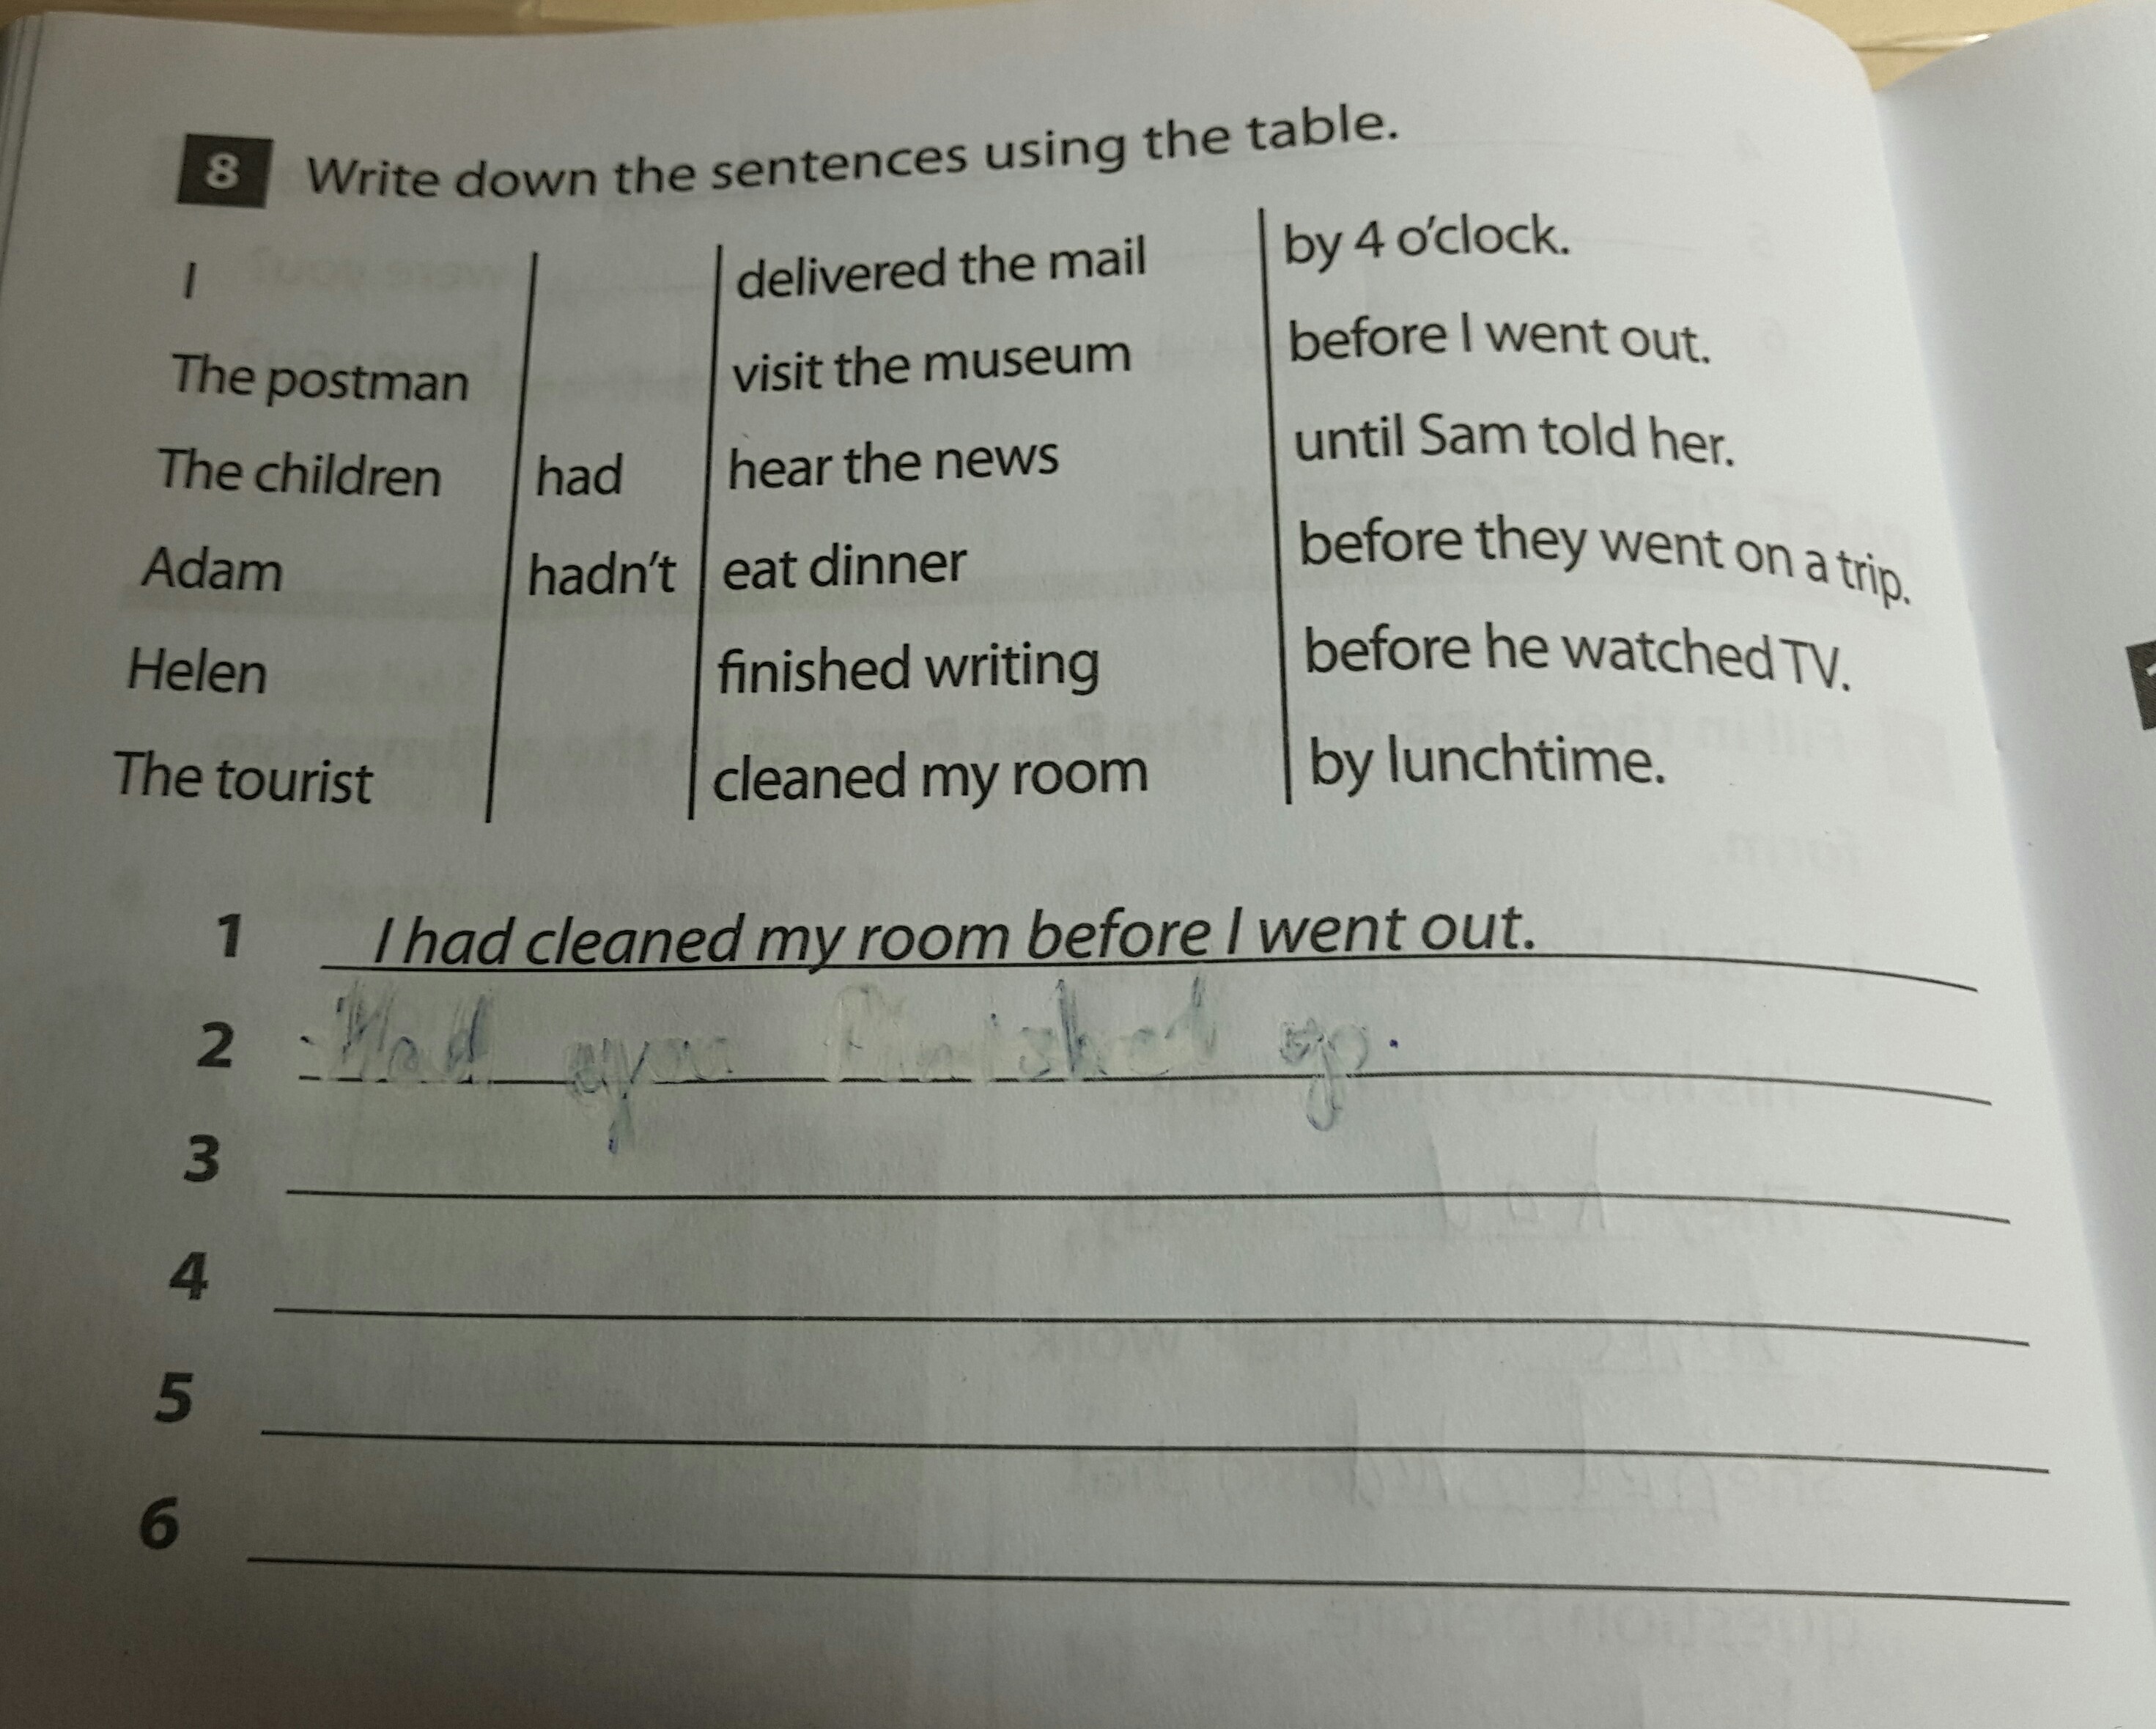 8 Write down the sentences using the table.
I delivered the mail by 4 o'clock.
The postman visit the museum before I went out.
The children had hear the news until Sam told her.
Adam hadn't eat dinner before they went on a trip.
Helen finished writing before he watched TV.
The tourist cleaned my room by lunchtime.
1 I had cleaned my room before I went out.
2 Had you finished
3
4
5
6